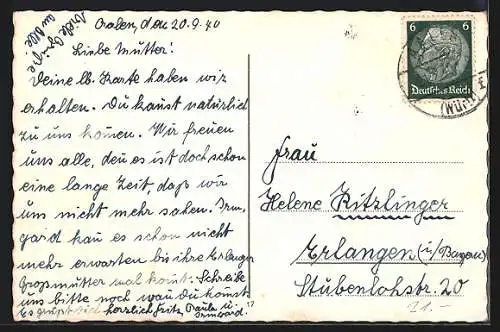 Aalen, den 20.9.40
viele Grüße
an alle!
Liebe Mutter!
Deine lb. Karte haben wir
erhalten. Du kanst natürlich
zu uns komen. Wir freuen
uns alle, den es ist doch schon
eine lange Zeit, daß wir
uns nicht mehr sahen. Irm-
gard kan es schon nicht
mehr erwarten bis ihre Erlanger
Großmutter mal komt. Schreibe
uns bitte noch wan du komst.
Es grüßt dich herzlich Fritz, Paula u.
Irmgard.
6 6
Deutsches Reich
Frau
Helene Ritzlinger
Erlangen (i/Bayern)
Stubenlohstr. 20
21.-